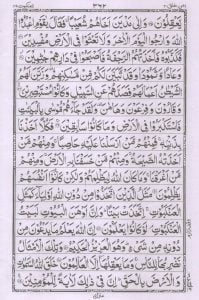 يَعْقِلُوْنَ وَ اِلٰى مَدْيَنَ اَخَاهُمْ شُعَيْبًا فَقَالَ يٰقَوْمِ اعْبُدُوا
اللّٰهَ وَ ارْجُوا الْيَوْمَ الْاٰخِرَ وَ لَا تَعْثَوْا فِى الْاَرْضِ مُفْسِدِيْنَ
فَكَذَّبُوْهُ فَاَخَذَتْهُمُ الرَّجْفَةُ فَاَصْبَحُوْا فِيْ دَارِهِمْ جٰثِمِيْنَ
وَ عَادًا وَّ ثَمُوْدَا۠ وَ قَدْ تَّبَيَّنَ لَكُمْ مِّنْ مَّسٰكِنِهِمْ وَ زَيَّنَ لَهُمُ
الشَّيْطٰنُ اَعْمَالَهُمْ فَصَدَّهُمْ عَنِ السَّبِيْلِ وَ كَانُوْا مُسْتَبْصِرِيْنَ
وَ قَارُوْنَ وَ فِرْعَوْنَ وَ هَامٰنَ وَ لَقَدْ جَآءَهُمْ مُّوْسٰى بِالْبَيِّنٰتِ
فَاسْتَكْبَرُوْا فِى الْاَرْضِ وَ مَا كَانُوْا سٰبِقِيْنَ فَكُلًّا اَخَذْنَا
بِذَنْۢبِهٖ فَمِنْهُمْ مَّنْ اَرْسَلْنَا عَلَيْهِ حَاصِبًا وَ مِنْهُمْ مَّنْ
اَخَذَتْهُ الصَّيْحَةُ وَ مِنْهُمْ مَّنْ خَسَفْنَا بِهِ الْاَرْضَ وَ مِنْهُمْ
مَّنْ اَغْرَقْنَا وَ مَا كَانَ اللّٰهُ لِيَظْلِمَهُمْ وَ لٰكِنْ كَانُوْا اَنْفُسَهُمْ
يَظْلِمُوْنَ مَثَلُ الَّذِيْنَ اتَّخَذُوْا مِنْ دُوْنِ اللّٰهِ اَوْلِيَآءَ كَمَثَلِ
الْعَنْكَبُوْتِ اِتَّخَذَتْ بَيْتًا وَ اِنَّ اَوْهَنَ الْبُيُوْتِ لَبَيْتُ
الْعَنْكَبُوْتِ لَوْ كَانُوْا يَعْلَمُوْنَ اِنَّ اللّٰهَ يَعْلَمُ مَا يَدْعُوْنَ مِنْ
دُوْنِهٖ مِنْ شَيْءٍ وَ هُوَ الْعَزِيْزُ الْحَكِيْمُ وَ تِلْكَ الْاَمْثَالُ
نَضْرِبُهَا لِلنَّاسِ وَ مَا يَعْقِلُهَا اِلَّا الْعٰلِمُوْنَ خَلَقَ اللّٰهُ السَّمٰوٰتِ
وَ الْاَرْضَ بِالْحَقِّ اِنَّ فِيْ ذٰلِكَ لَاٰيَةً لِّلْمُؤْمِنِيْنَ